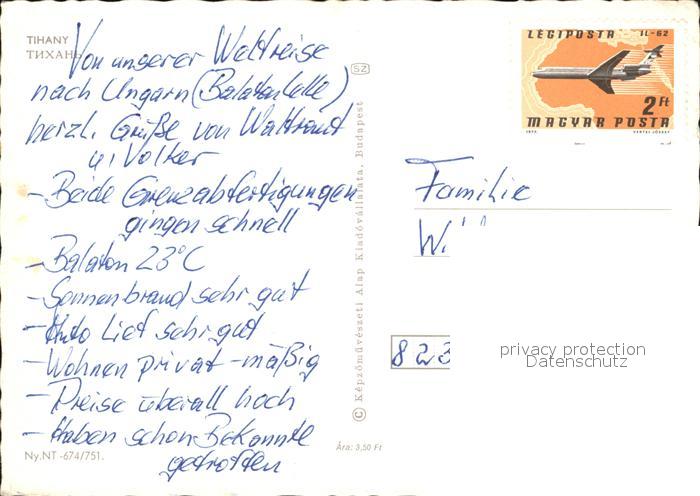 TIHANY
ТИХАНЬ
Von unserer Weltreise
nach Ungarn (Balatonlelle)
herzl. Grüße von Waltraut
u. Volker
- Beide Grenzabfertigungen
gingen schnell
- Balaton 23°C
- Sonnenbrand sehr gut
- Auto lief sehr gut
- Wohnen privat - mäßig
- Preise überall hoch
- Haben schon Bekannte
getroffen
Ny.NT -674/751.
Ára: 3,50 Ft
SZ
© Képzőművészeti Alap Kiadóvállalata, Budapest
LÉGIPOSTA IL-62
2 Ft
MAGYAR POSTA
1977 VERTEL JÓZSEF
Familie
W.
823
privacy protection
Datenschutz